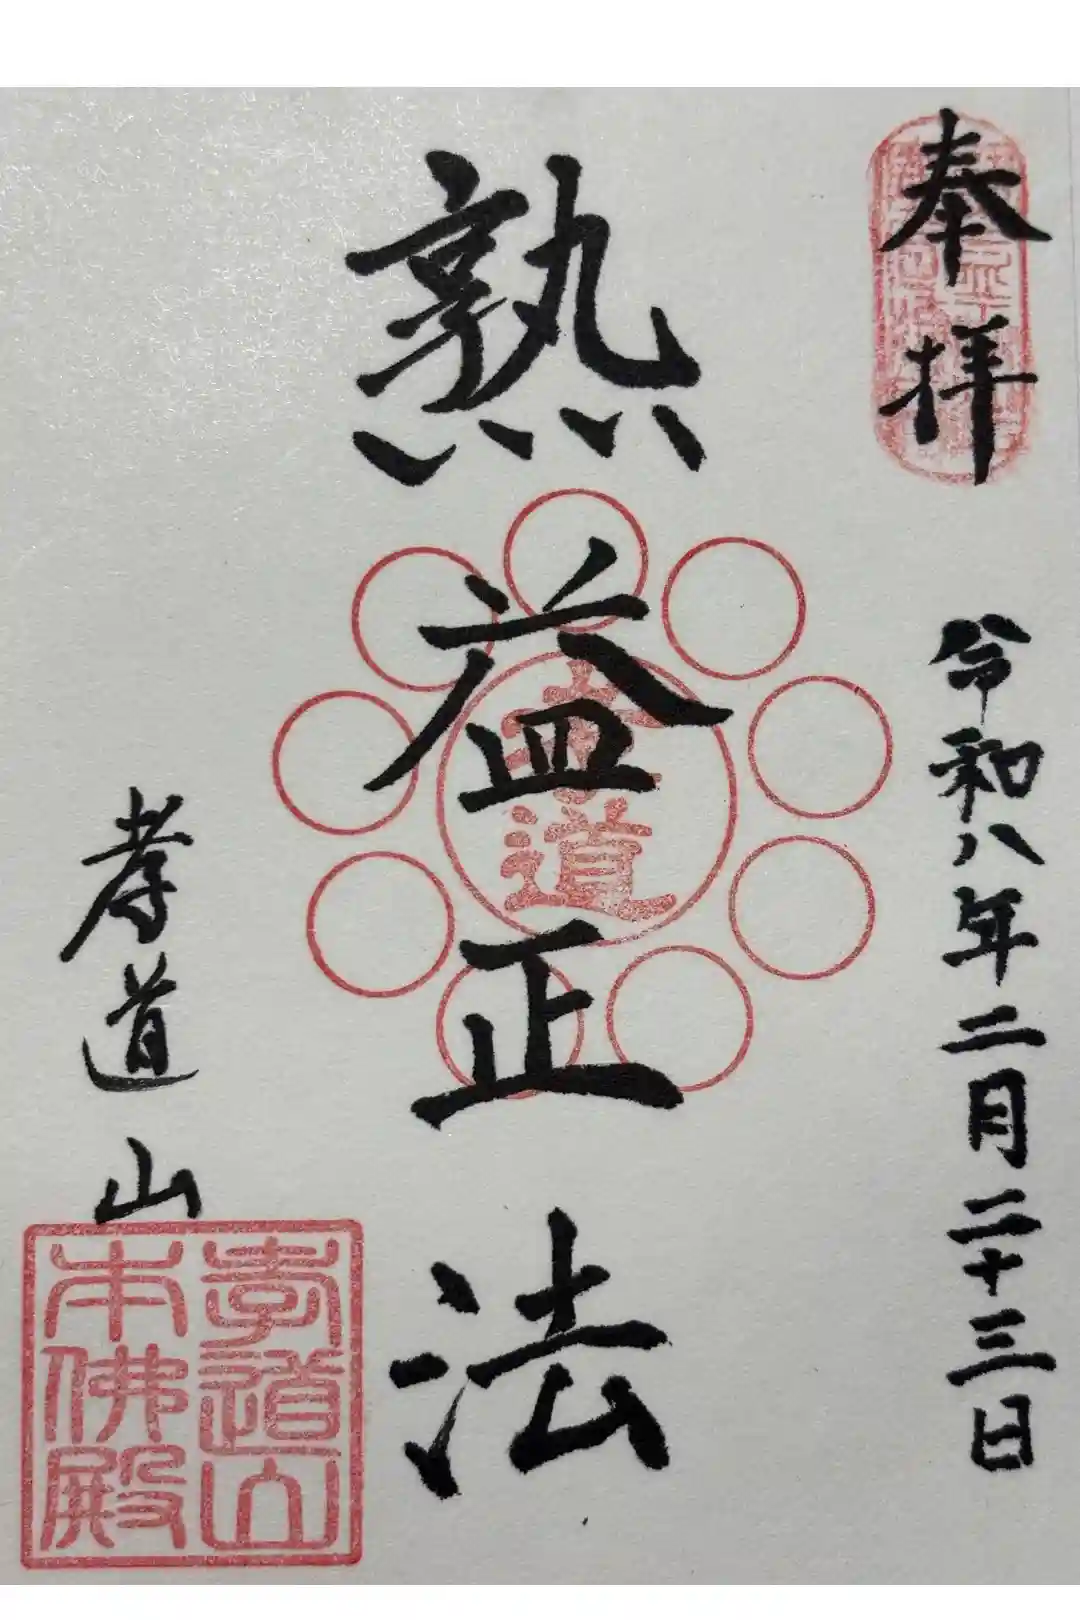 奉拝
令和八年二月二十三日
熟益正法
孝道
孝道山
孝道山
本佛殿